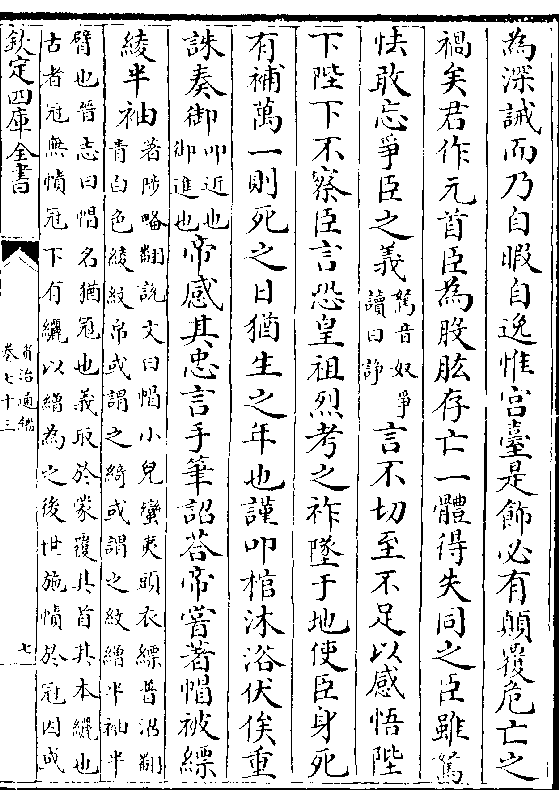 為深誡而乃自暇自逸惟宫臺是飾必有顛覆危亡之
禍矣君作元首臣為股肱存亡一體得失同之臣雖駑
怯敢忘爭臣之義駑音奴爭
讀曰諍言不切至不足以感悟陛
下陛下不察臣言恐皇祖烈考之祚墜于地使臣身死
有補萬一則死之日猶生之年也謹叩棺沐浴伏俟重
誅奏御叩近也
御進也帝感其忠言手筆詔荅帝嘗著帽被縹
綾半袖著陟略翻說文曰帽小兒蠻夷頭衣縹普沼翻
青白色綾紋帛或謂之綺或謂之紋繒半袖半
臂也晉志曰帽名猶冠也義取於蒙覆其首其本纚也
古者冠無幘冠下有纚以繒為之後世施幘於冠因或
欽定四庫全書
資治通鑑
卷七十三
七